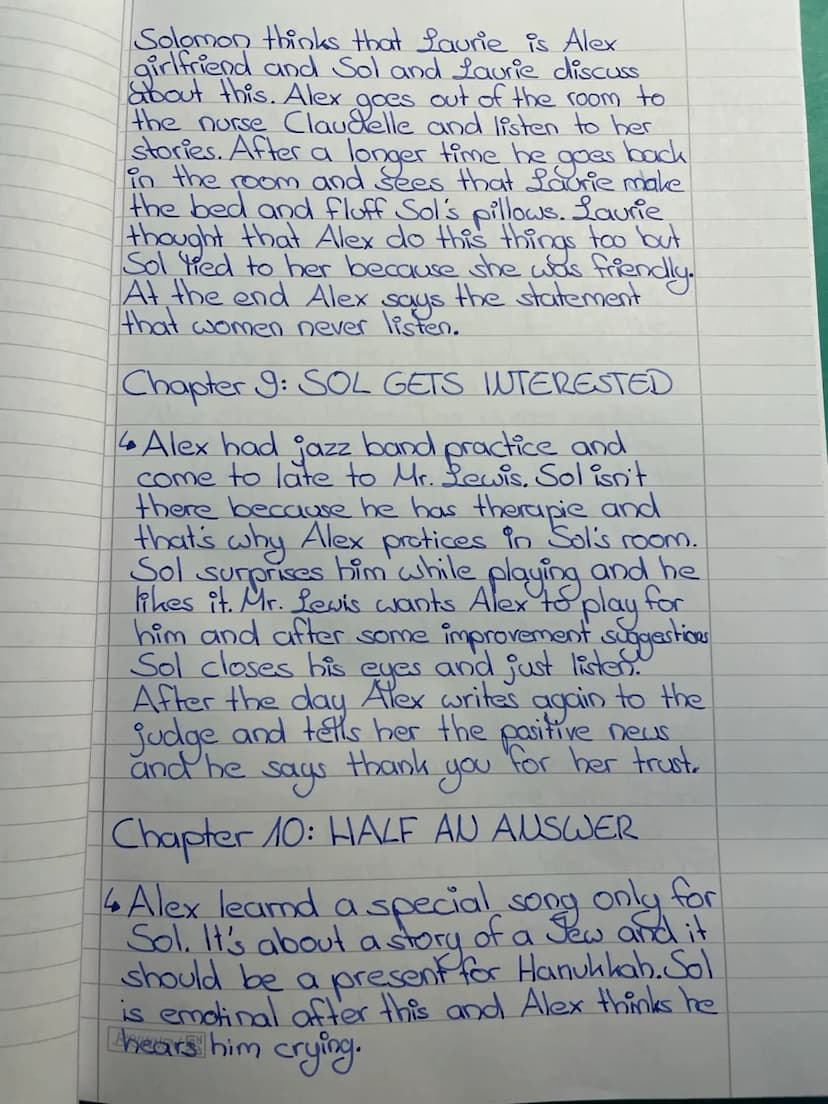 Solomon thinks that Laurie is Alex
girlfriend and Sol and Laurie discuss
about this. Alex goes out of the room to
the nurse Claudelle and listen to her
stories. After a longer time he goes back
in the room and sees that Laurie make
the bed and fluff Sol's pillows. Laurie
thought that Alex do this things too but
Sol lied to her because she was friendly.
At the end Alex says the statement
that women never listen.
Chapter 9: SOL GETS INTERESTED
↳ Alex had jazz band practice and
come to late to Mr. Lewis. Sol isn't
there because he has therapie and
that's why Alex protices in Sol's room.
Sol surprises him while playing and he
likes it. Mr. Lewis wants Alex to play for
him and after some improvement suggestions
Sol closes his eyes and just listen.
After the day Alex writes again to the
judge and tells her the positive news
and he says thank you for her trust.
Chapter 10: HALF AN ANSWER
↳ Alex learnd a special song only for
Sol. It's about a story of a Jew and it
should be a present for Hanukkah. Sol
is emotinal after this and Alex thinks he
hears him crying.